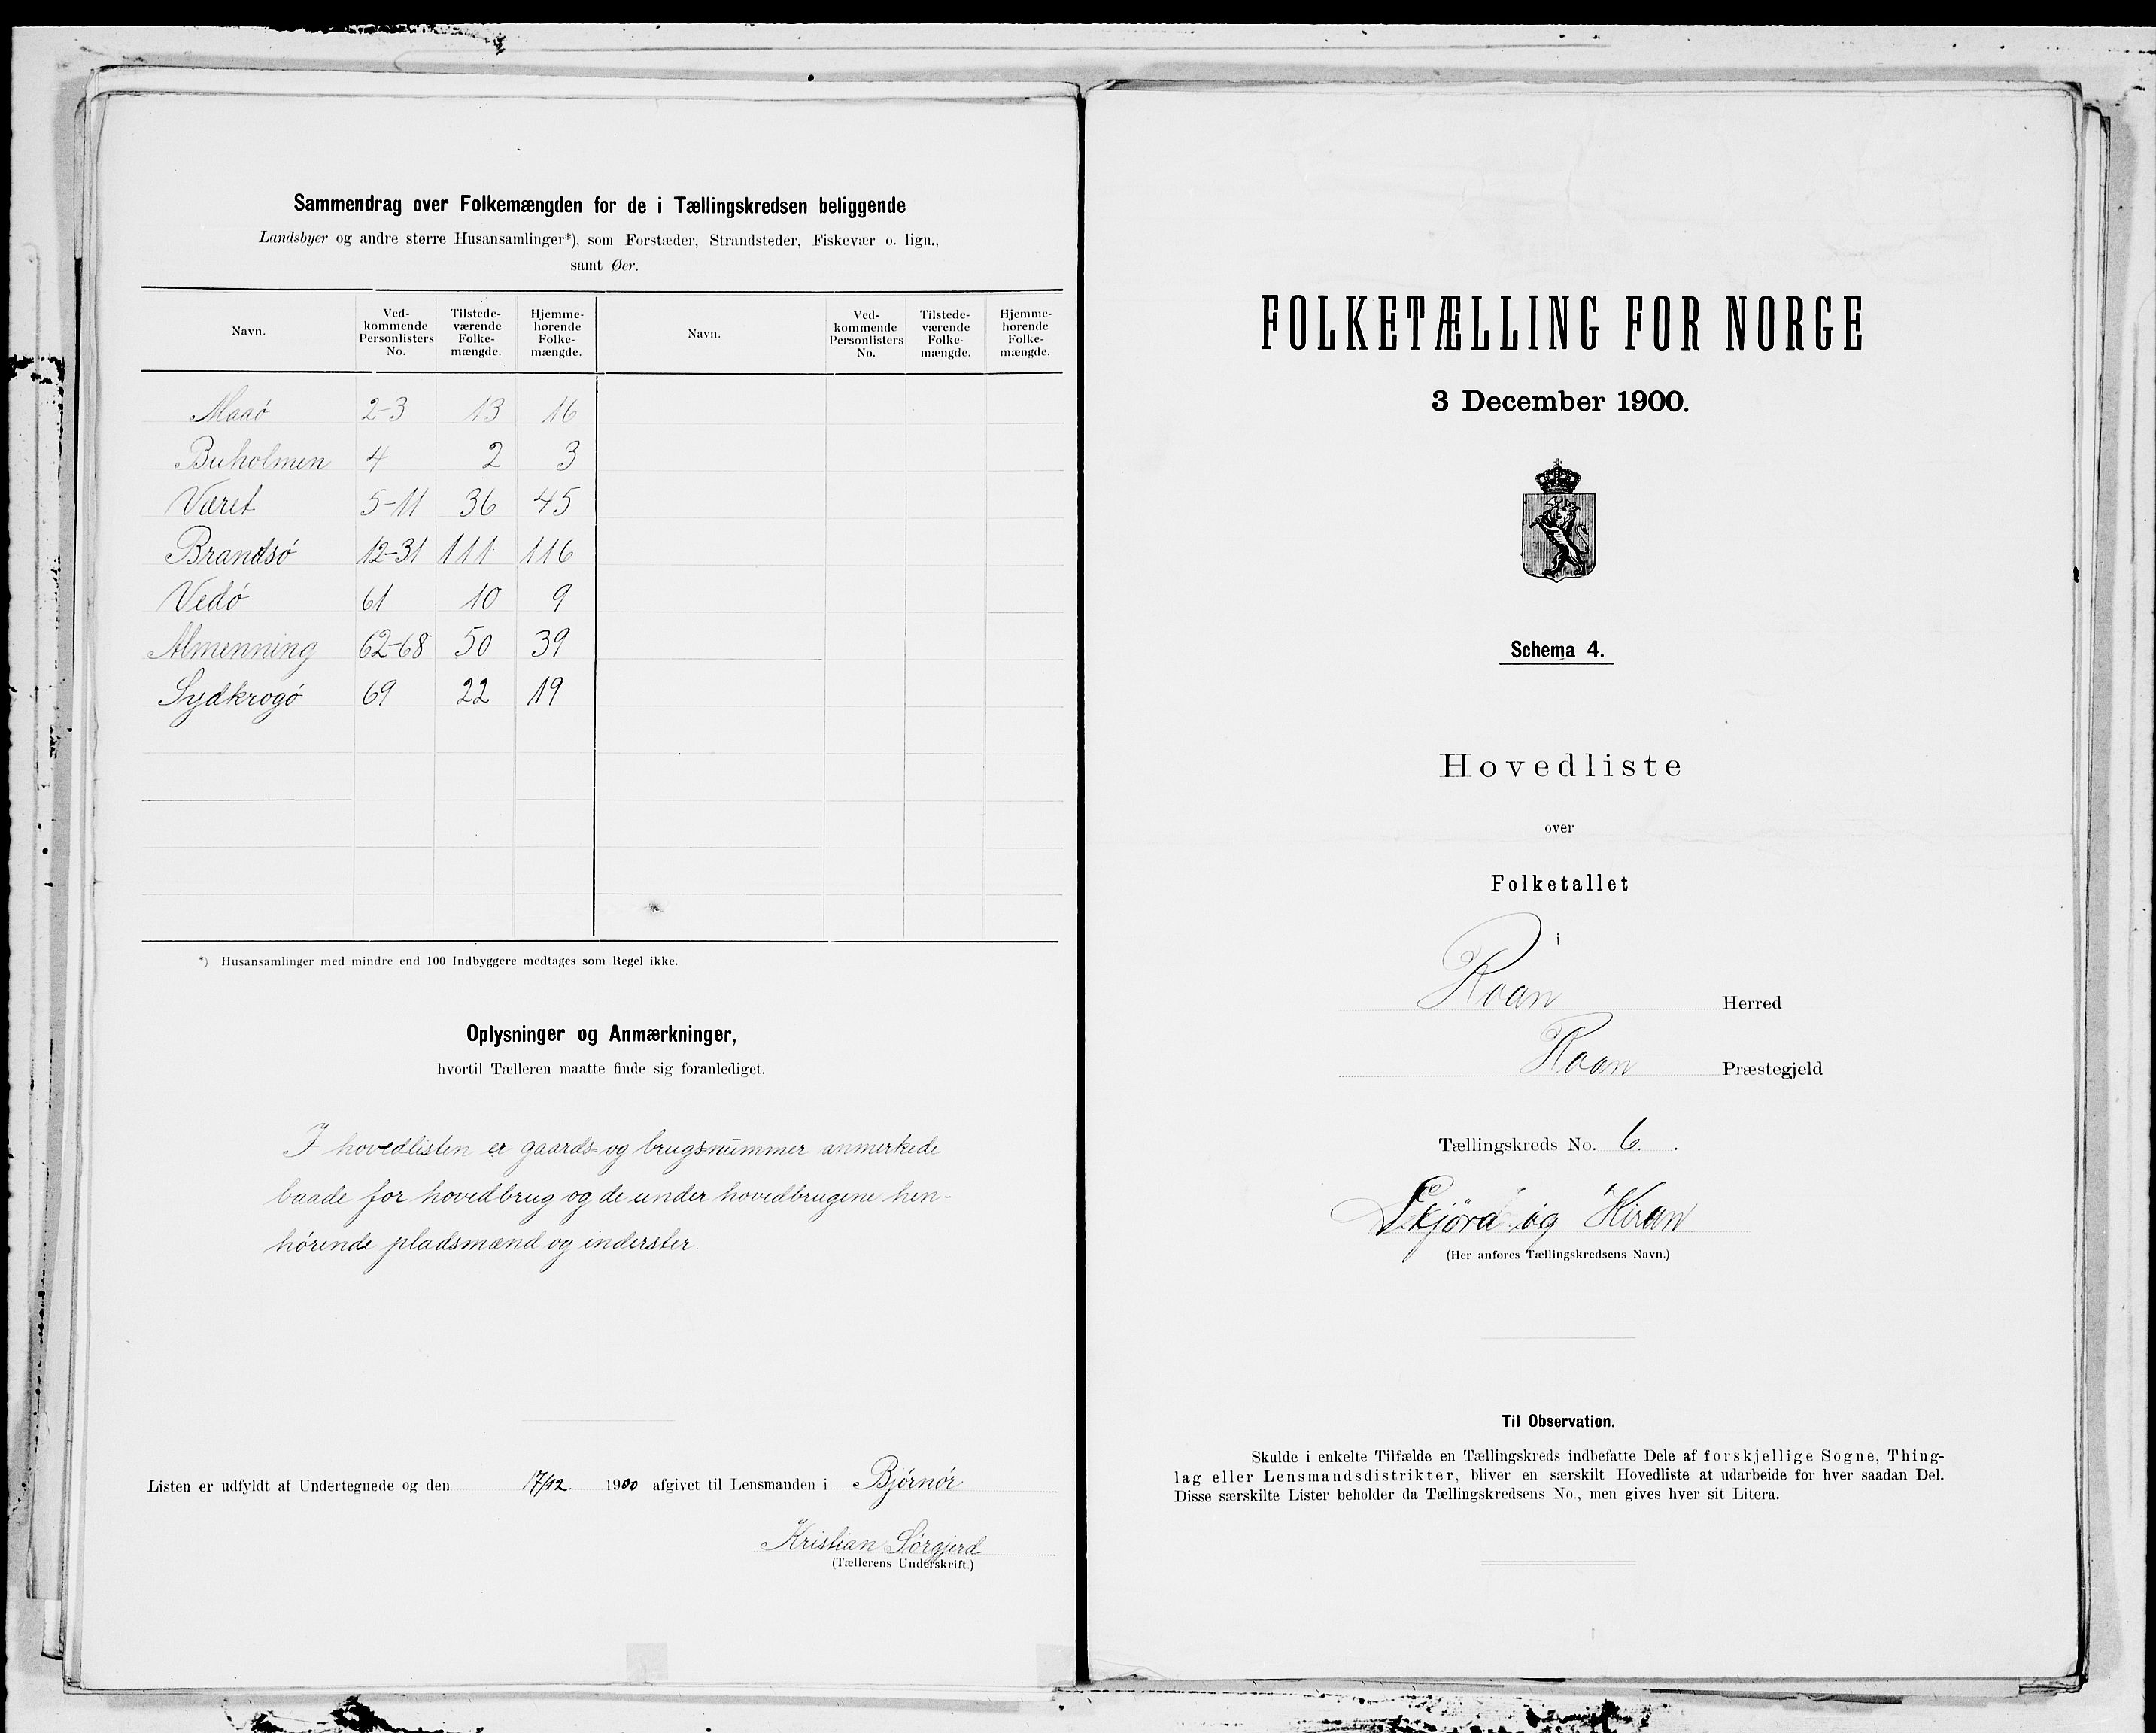 Sammendrag over Folkemængden for de i Tællingskredsen beliggende
Landsbyer og andre større Husansamlinger*), som Forstæder, Strandsteder, Fiskevær o. lign.,
samt Øer.
Navn. Ved-kommende Personlisters No. Tilstede-værende Folke-mængde. Hjemme-hørende Folke-mængde. Navn. Ved-kommende Personlisters No. Tilstede-værende Folke-mængde. Hjemme-hørende Folke-mængde.
Maaö 2-3 13 16
Buholmen 4 2 3
Været 5-11 36 45
Brandsö 12-31 111 116
Vedö 61 10 9
Almenning 62-68 50 39
Sydkrogö 69 22 19
*) Husansamlinger med mindre end 100 Indbyggere medtages som Regel ikke.
Oplysninger og Anmærkninger,
hvortil Tælleren maatte finde sig foranlediget.
I hovedlisten er gaards- og brugsnummer anmerkede
baade for hovedbrug og de under hovedbrugene hen-
hørende pladsmænd og inderster.
Listen er udfyldt af Undertegnede og den 17/12 1900 afgivet til Lensmanden i Björnör
Kristian Sörgjerd
(Tællerens Underskrift.)
FOLKETÆLLING FOR NORGE
3 December 1900.
Schema 4.
Hovedliste
over
Folketallet
i
Roan Herred
Roan Præstegjeld
Tællingskreds No. 6.
og Kiran
(Her anføres Tællingskredsens Navn.)
Til Observation.
Skulde i enkelte Tilfælde en Tællingskreds indbefatte Dele af forskjellige Sogne, Thing-
lag eller Lensmandsdistrikter, bliver en særskilt Hovedliste at udarbeide for hver saadan Del.
Disse særskilte Lister beholder da Tællingskredsens No., men gives hver sit Litera.